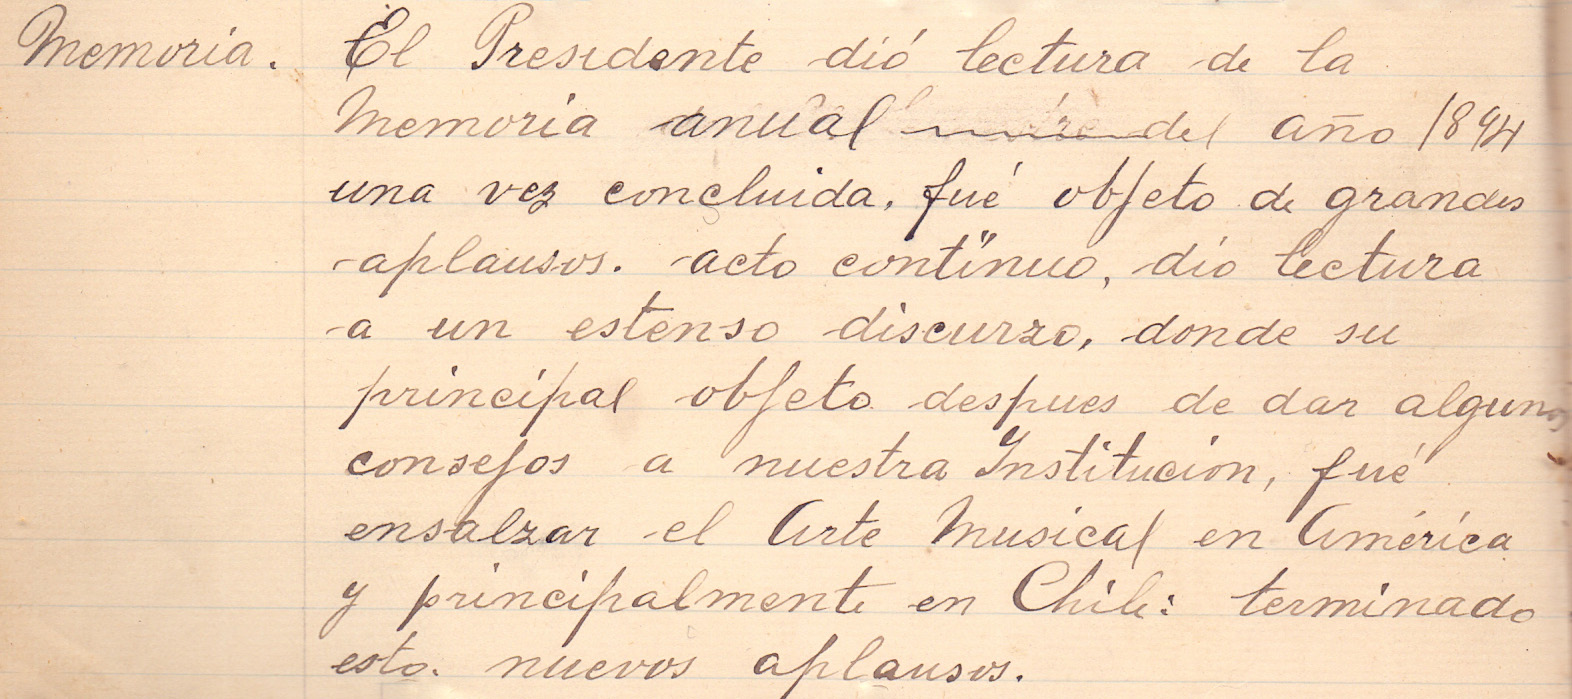 Memoria. El Presidente dió lectura de la
Memoria anual del año 1894
una vez concluida, fué objeto de grandes
aplausos. acto contínuo, dio lectura
a un estenso discurzo, donde su
principal objeto despues de dar algunos
consejos a nuestra Institucion, fué
ensalzar el Arte Musical en América
y principalmente en Chile: terminado
esto. nuevos aplausos.